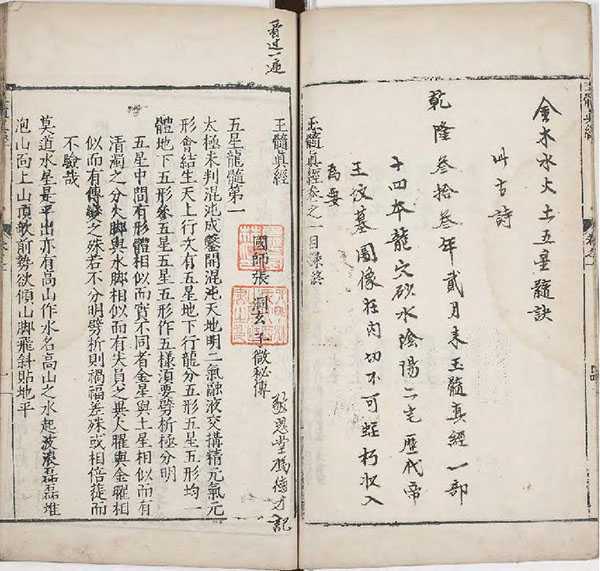 金木水火土五星髓訣
古詩
乾隆叁拾叁年貳月末玉髓真經一部
十四本龍穴砂水陰陽二宅歷代帝
王坟墓圖像在內切不可蛀朽收入
為要
玉髓真經卷之一目錄終
看过一遍
玉髓真經
國師張洞玄子微秘傳
堂馮德才記
五星龍髓第一
太極未判混沌成鑿開混沌天地明二氣融液交搆精元氣元
形會結生天上行次有五星地下行龍分五形五星五形均一
體地下五形叅五星五星五形作五樣須要劈析極分明
五星中間有形體相似而質不同者金星與土星相似而有
清濁之分火脚與水脚相似而有失員之異火耀與金耀相
似而有之殊若不分明劈析則禍福差殊或相倍蓰而
不驗哉
莫道水星是平出亦有高山作水名高山之水起波浪磊磊堆
泡山向上山頂軟前勢欲傾山脚飛斜貼地平